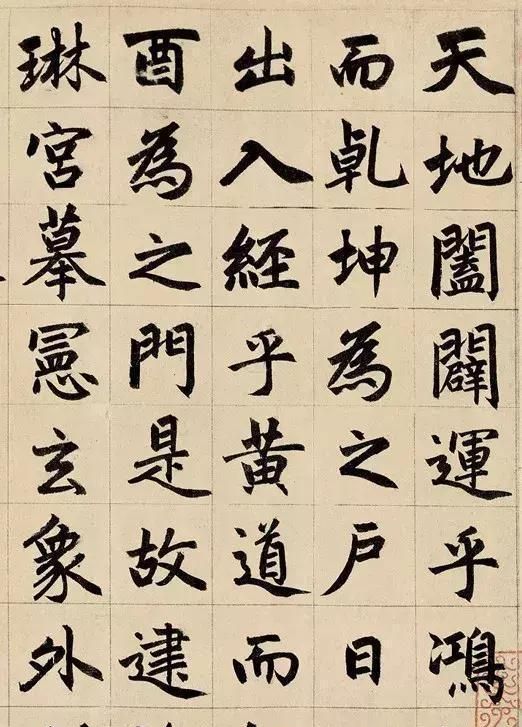 天地闔闢運乎鴻
而乹坤為之户日
出入經乎黃道而
酉為之門是故建
琳宮摹憲玄象外